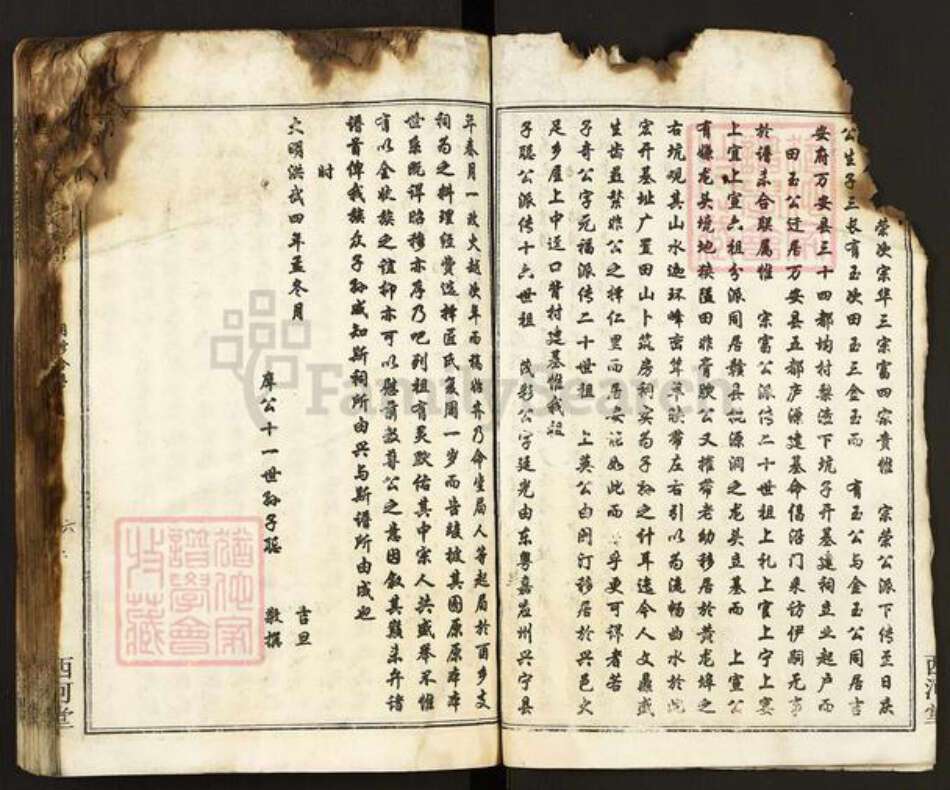 荣次宗华三宗富四宗贵惟　宗荣公派下传至日庆
公生子三长有玉次田玉三金玉而　有玉公与金玉公同居吉
安府万安县三十四都均村梨渣下坑子开基建祠立业起户而
田玉公迁居万安县五都庐源建基命倡沿门来访伊嗣无事
於谱未合联属惟　宗富公派传二十世祖上礼上官上宁上寀
上宣上宣六祖分派同居赣县桃源洞之龙头立基而　上宣公
有嫌龙头境地狭隘田非膏腴公又携带老幼移居於黄龙埠之
右坑观其山水迩环峰密耸草映带左右引以为流畅曲水於此
宏开基址广置田山卜筑房祠寔为子孙之计耳迄今人文鼎盛
生齿益繁非公之择仁里而居安能如此而　乎更可谓者若
子奇公字元福派传二十世祖　上英公由闽汀移居於兴邑文
足乡屋上中迳口背村建基惟我祖
子聪公派传十六世祖　茂彰公字廷光由东粤嘉应州兴宁县
年春月一政火越次年而稿临弃乃命坐局人等起局於酉乡文
祠为之料理经费选择匠氏复周一岁而告竣披其图原原本本
世系既详昭穆亦序乃吧列祖有灵默佑其中宗人共盛举不惟
有以全收族之谊抑亦可以慰前敦尊公之意因叙其巅末弁诸
谱首俾我族众子孙咸知斯祠所由兴与斯谱所由成也
时
大明洪武四年孟冬月　吉旦
摩公十一世孙子聪　敬撰
六
西河堂
西河堂
FamilySearch
谱学会
收藏